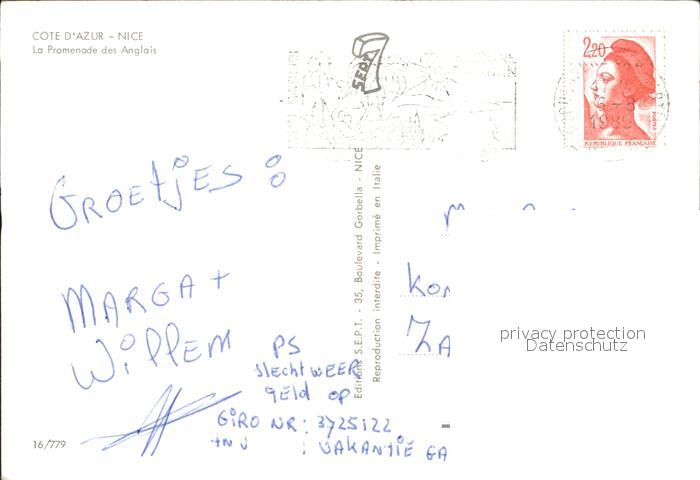 COTE D'AZUR – NICE
La Promenade des Anglais
SEPT
2,20
POSTES
REPUBLIQUE FRANÇAISE
1985
Editions S.E.P.T. - 35, Boulevard Gorbella - NICE
Reproduction interdite - Imprimé en Italie
GROETJES :
MARGA +
Willem
PS
slecht WEER
geld op
GiRO NR: 3725122
tnv : VAKANTIE GA
KO
ZA
privacy protection
Datenschutz
16/779